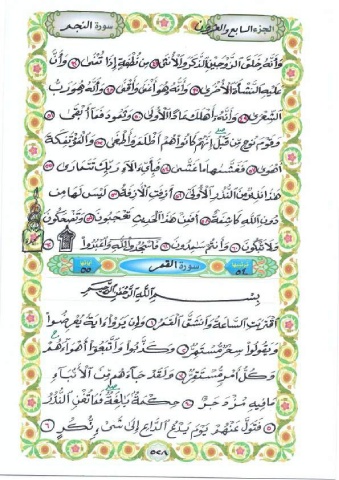 الجزء السابع والعشرون سورة النجم
وَأَنَّهُ خَلَقَ الزَّوْجَيْنِ الذَّكَرَ وَالْأُنثَى ٤٥ مِن نُّطْفَةٍ إِذَا تُمْنَى ٤٦ وَأَنَّ
عَلَيْهِ النَّشْأَةَ الْأُخْرَى ٤٧ وَأَنَّهُ هُوَ أَغْنَى وَأَقْنَى ٤٨ وَأَنَّهُ هُوَ رَبُّ
الشِّعْرَى ٤٩ وَأَنَّهُ أَهْلَكَ عَادًا الْأُولَى ٥٠ وَثَمُودَ فَمَا أَبْقَى ٥١
وَقَوْمَ نُوحٍ مِّن قَبْلُ إِنَّهُمْ كَانُوا هُمْ أَظْلَمَ وَأَطْغَى ٥٢ وَالْمُؤْتَفِكَةَ
أَهْوَى ٥٣ فَغَشَّىهَا مَا غَشَّى ٥٤ فَبِأَيِّ آلَاءِ رَبِّكَ تَتَمَارَى ٥٥
هَذَا نَذِيرٌ مِّنَ النُّذُرِ الْأُولَى ٥٦ أَزِفَتِ الْآزِفَةُ ٥٧ لَيْسَ لَهَا مِن
دُونِ اللَّهِ كَاشِفَةٌ ٥٨ أَفَمِنْ هَذَا الْحَدِيثِ تَعْجَبُونَ ٥٩ وَتَضْحَكُونَ
وَلَا تَبْكُونَ ٦٠ وَأَنتُمْ سَامِدُونَ ٦١ فَاسْجُدُوا لِلَّهِ وَاعْبُدُوا ٦٢
ترتيبها ٥٤ سورة القمر آياتها ٥٥
بِسْمِ اللَّهِ الرَّحْمَنِ الرَّحِيمِ
اقْتَرَبَتِ السَّاعَةُ وَانشَقَّ الْقَمَرُ ١ وَإِن يَرَوْا آيَةً يُعْرِضُوا
وَيَقُولُوا سِحْرٌ مُّسْتَمِرٌّ ٢ وَكَذَّبُوا وَاتَّبَعُوا أَهْوَاءَهُمْ
وَكُلُّ أَمْرٍ مُّسْتَقِرٌّ ٣ وَلَقَدْ جَاءَهُم مِّنَ الْأَنبَاءِ
مَا فِيهِ مُزْدَجَرٌ ٤ حِكْمَةٌ بَالِغَةٌ فَمَا تُغْنِ النُّذُرُ
٥ فَتَوَلَّ عَنْهُمْ يَوْمَ يَدْعُ الدَّاعِ إِلَى شَيْءٍ نُّكُرٍ ٦
٥٢٨